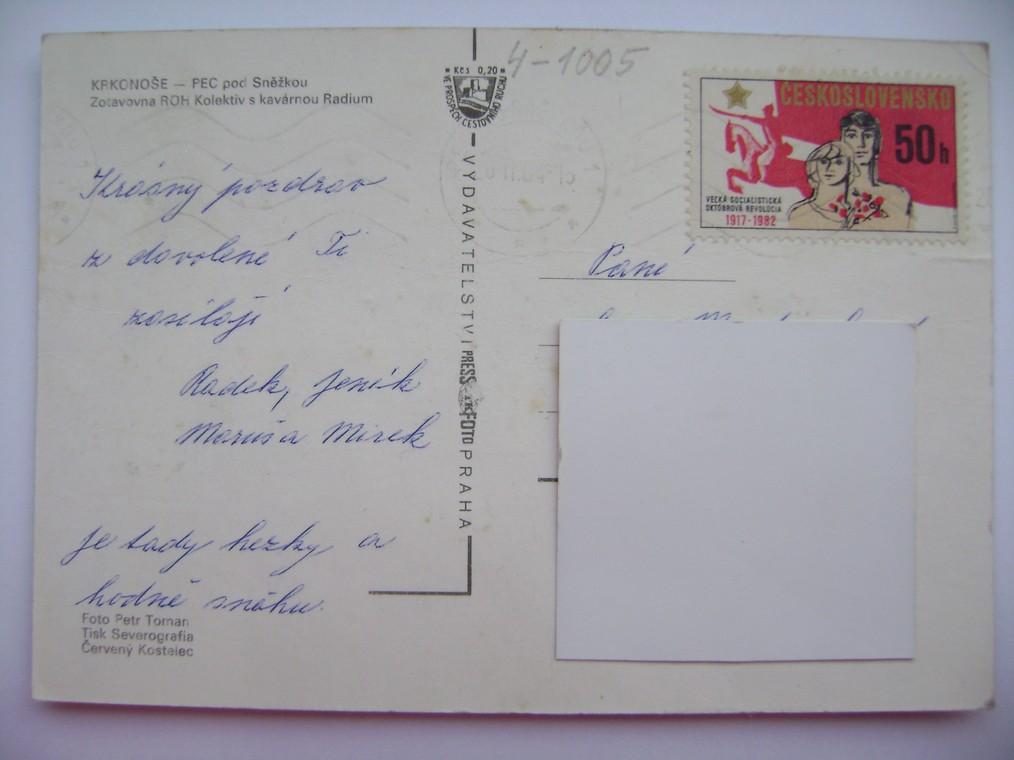 KRKONOŠE — PEC pod Sněžkou
Zotavovna ROH Kolektiv s kavárnou Radium
Krásný pozdrav
z dovolené Ti
zasílají
Radek, Jeník
Maruš a Mirek
Je tady hezky a
hodně sněhu.
Foto Petr Toman
Tisk Severografia
Červený Kostelec
Kčs 0,20
VE PROSPĚCH CESTOVNÍHO RUCHU
VYDAVATELSTVÍ PRESSFOTO PRAHA
4-1005
ČESKOSLOVENSKO
50h
VEĽKÁ SOCIALISTICKÁ
OKTÓBROVÁ REVOLÚCIA
1917-1982
Paní